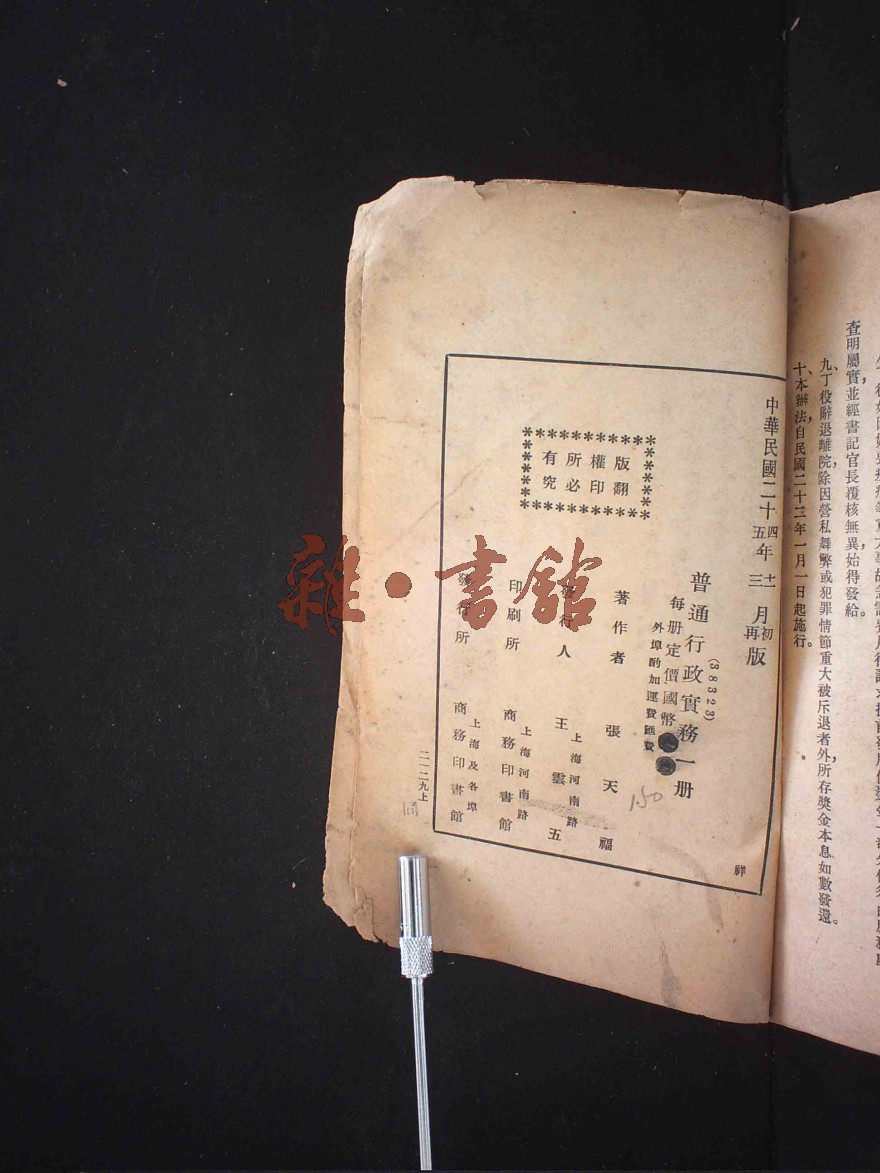 查明屬實，並經書記官長覆核無異，始得發給。
九、丁役辭退離院，除因營私舞弊或犯罪情節重大被斥退者外，所存獎金本息如數發還。
十、本辦法自民國二十三年一月一日起施行。
中華民國二十四年十一月初版
五 三 再
(38323)
普通行政實務一册
每册定價國幣
外埠酌加運費匯費
著作者 張天福
發行人 王雲五
上海河南路
印刷所 商務印書館
上海河南路
發行所 商務印書館
上海及各埠
版權所有
翻印必究
二一二九上
祥
150
雜·書舘